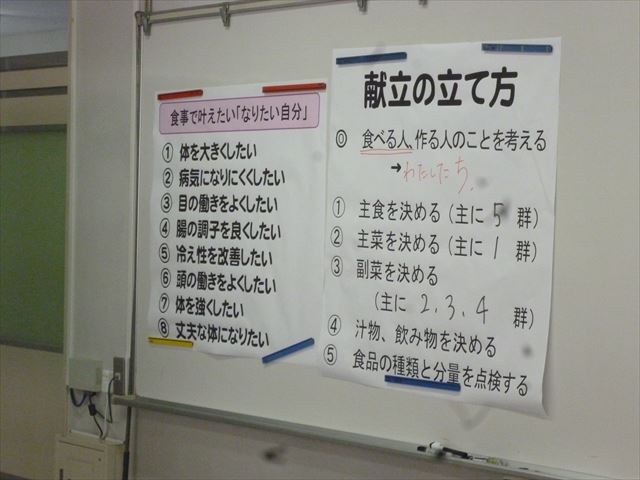 食事で叶えたい「なりたい自分」
① 体を大きくしたい
② 病気になりにくくしたい
③ 目の働きをよくしたい
④ 腸の調子を良くしたい
⑤ 冷え性を改善したい
⑥ 頭の働きをよくしたい
⑦ 体を強くしたい
⑧ 丈夫な体になりたい
献立の立て方
◎ 食べる人、作る人のことを考える
→わたしたち。
① 主食を決める（主に 5 群）
② 主菜を決める（主に 1 群）
③ 副菜を決める
（主に 2、3、4 群）
④ 汁物、飲み物を決める
⑤ 食品の種類と分量を点検する